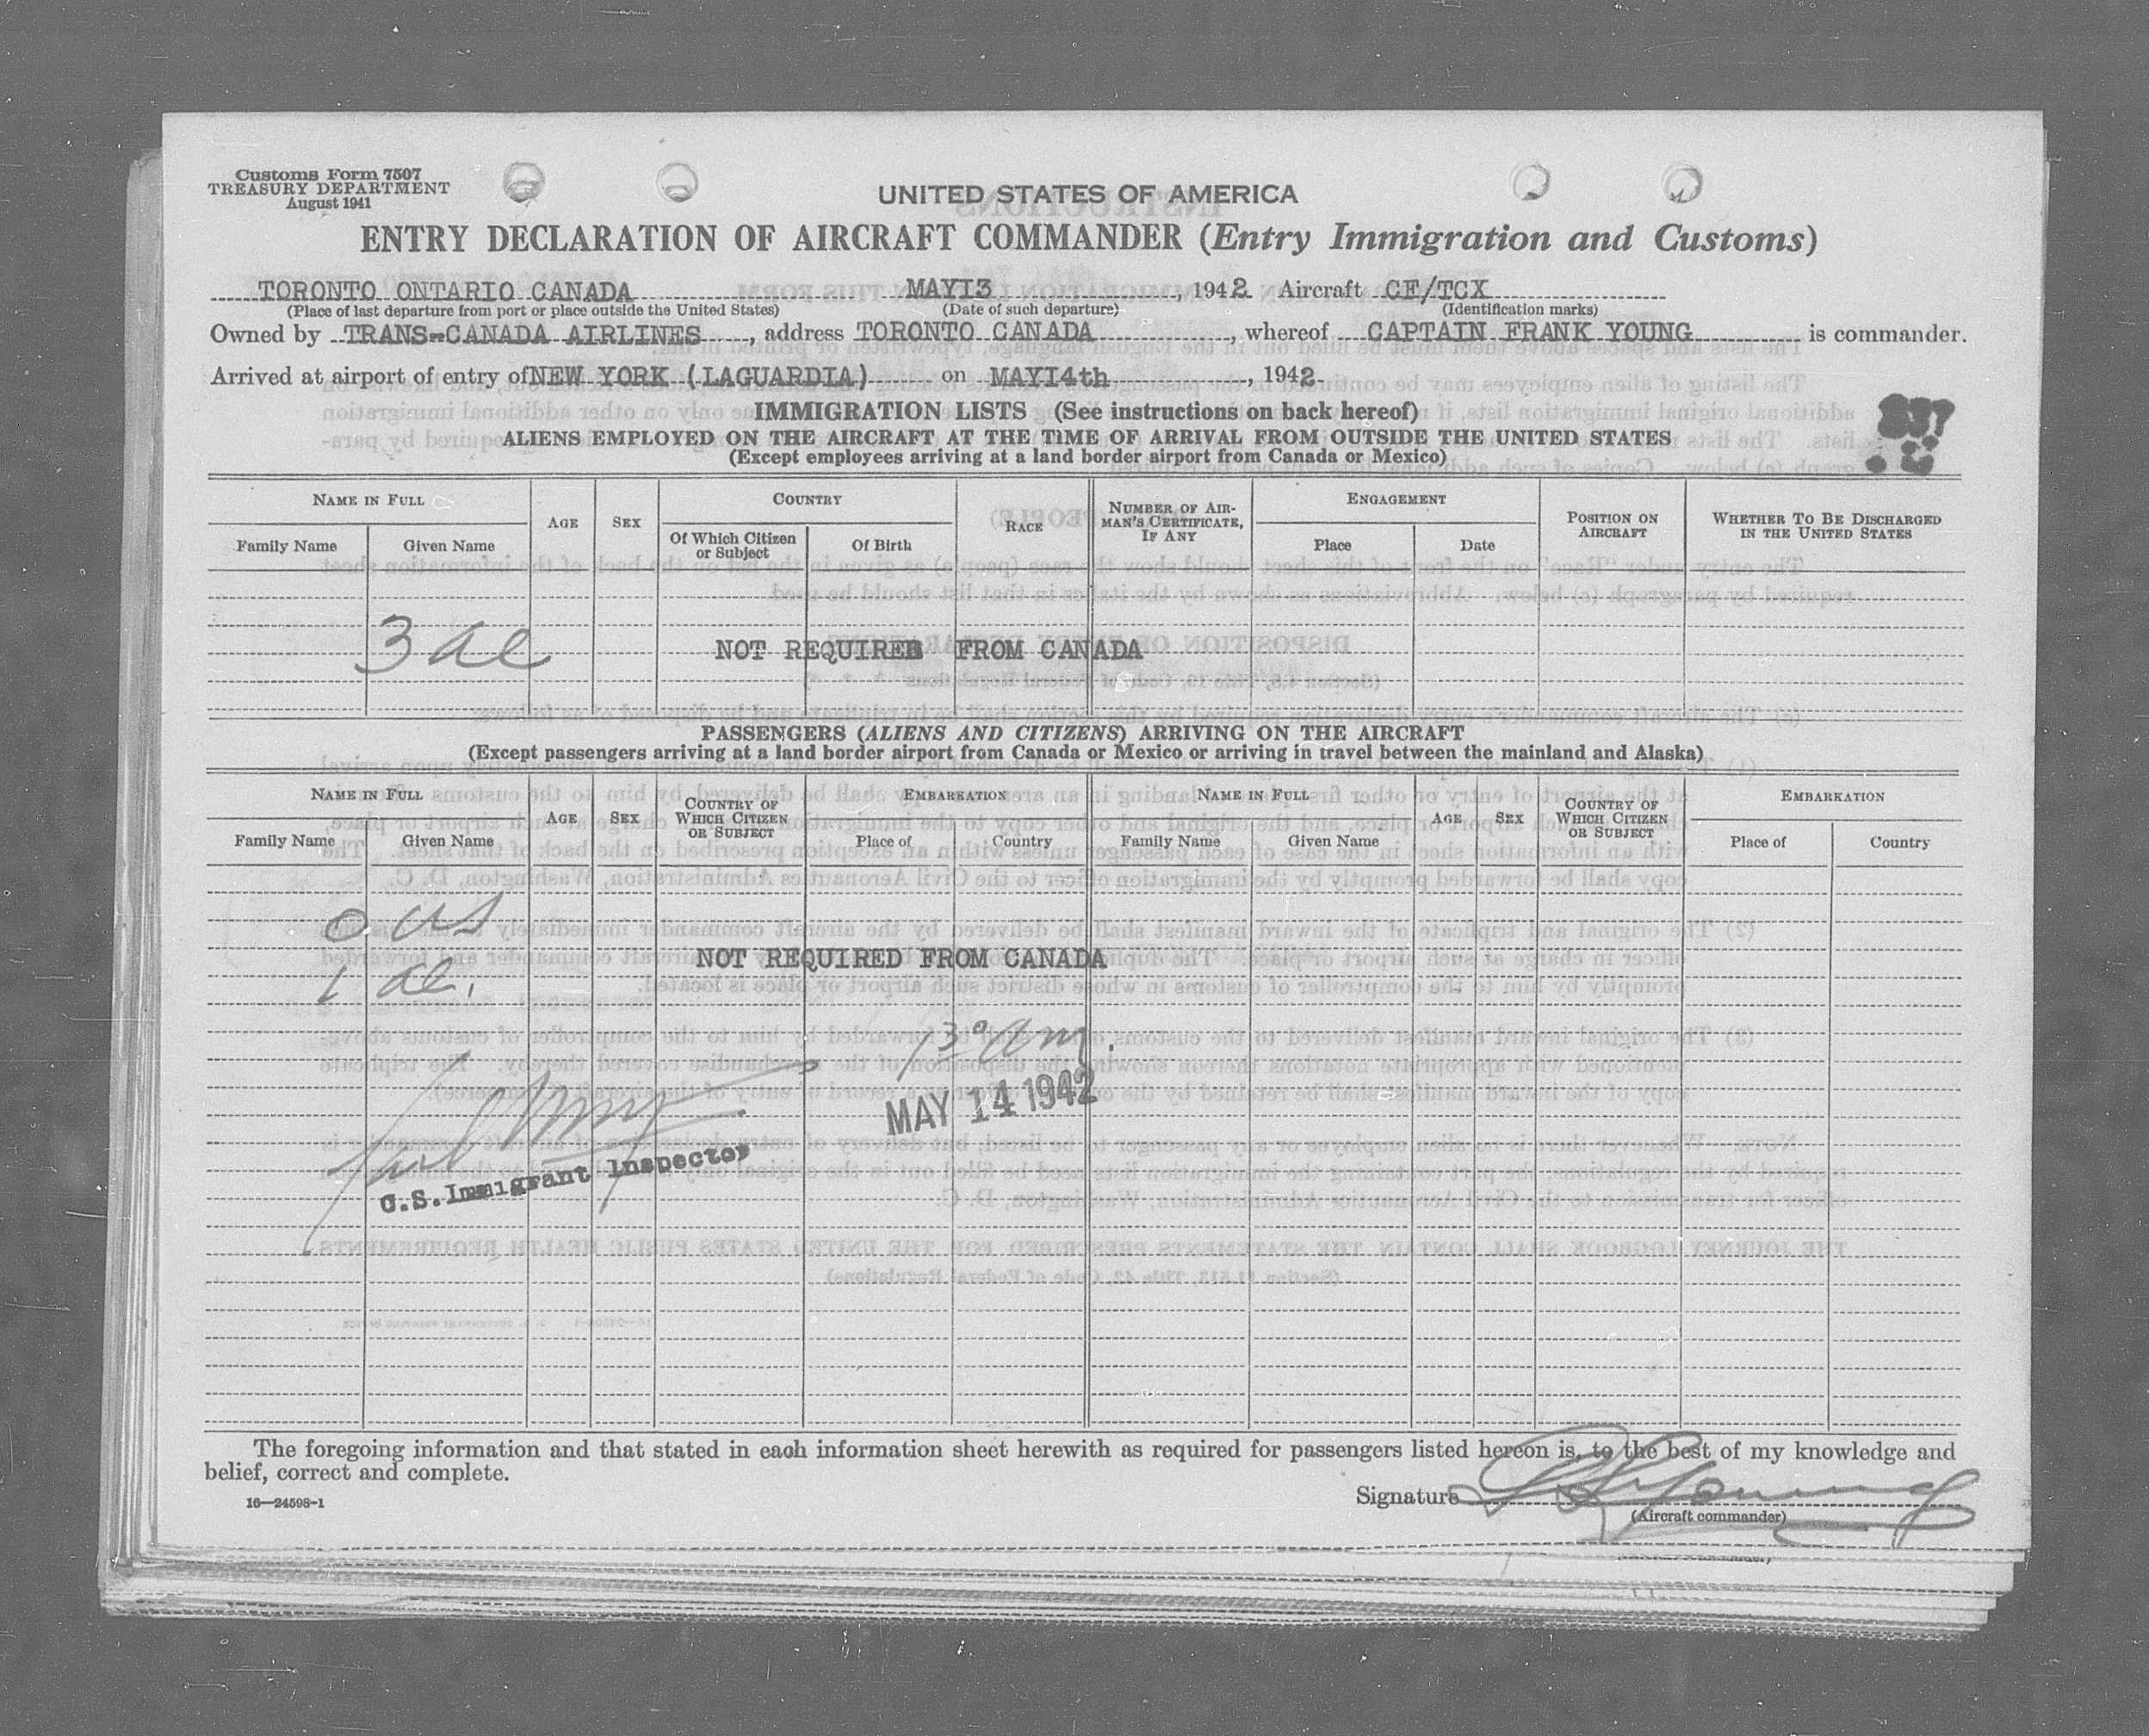 Customs Form 7507
TREASURY DEPARTMENT
August 1941
UNITED STATES OF AMERICA
ENTRY DECLARATION OF AIRCRAFT COMMANDER (Entry Immigration and Customs)
TORONTO ONTARIO CANADA MAYI3, 1942 Aircraft CF/TCX
(Place of last departure from port or place outside the United States) (Date of such departure) (Identification marks)
Owned by TRANS-CANADA AIRLINES, address TORONTO CANADA, whereof CAPTAIN FRANK YOUNG is commander.
Arrived at airport of entry of NEW YORK (LAGUARDIA) on MAYI4th, 1942.
IMMIGRATION LISTS (See instructions on back hereof)
ALIENS EMPLOYED ON THE AIRCRAFT AT THE TIME OF ARRIVAL FROM OUTSIDE THE UNITED STATES
(Except employees arriving at a land border airport from Canada or Mexico)
NAME IN FULL AGE SEX COUNTRY RACE NUMBER OF AIRMAN'S CERTIFICATE, IF ANY ENGAGEMENT POSITION ON AIRCRAFT WHETHER TO BE DISCHARGED IN THE UNITED STATES
Family Name Given Name Of Which Citizen or Subject Of Birth Place Date
3 al
NOT REQUIRED FROM CANADA
PASSENGERS (ALIENS AND CITIZENS) ARRIVING ON THE AIRCRAFT
(Except passengers arriving at a land border airport from Canada or Mexico or arriving in travel between the mainland and Alaska)
NAME IN FULL AGE SEX COUNTRY OF WHICH CITIZEN OR SUBJECT EMBARKATION NAME IN FULL AGE SEX COUNTRY OF WHICH CITIZEN OR SUBJECT EMBARKATION
Family Name Given Name Place of Country Family Name Given Name Place of Country
0 US
1 al.
NOT REQUIRED FROM CANADA
130 am.
MAY 14 1942
U.S. Immigrant Inspector
The foregoing information and that stated in each information sheet herewith as required for passengers listed hereon is, to the best of my knowledge and
belief, correct and complete.
16—24598-1
Signature Young
(Aircraft commander)